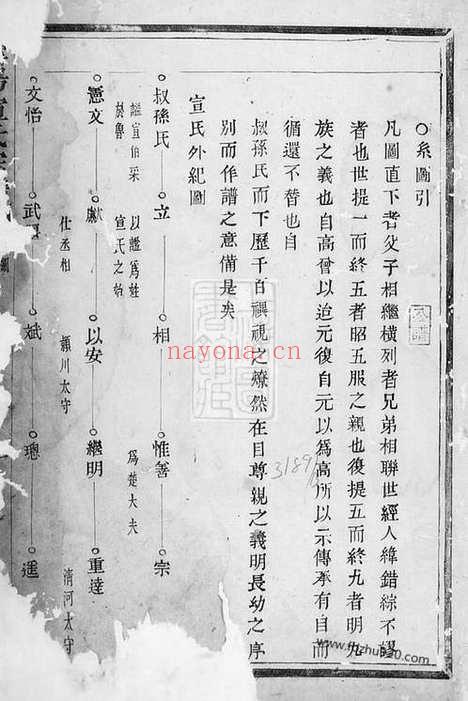 ○系圖引
凡圖直下者父子相繼橫列者兄弟相聯世經人緯錯綜不謬
者也世提一而終五者昭五服之親也復提五而終九者明九
族之義也自高曾以迨元復自元以為高所以示傳承有自而
循還不替也自
叔孫氏而下歷千百禩視之燎然在目尊親之義明長幼之序
別而作譜之意備是矣
宣氏外紀圖
叔孫氏 立 相 惟善 宗
謚宣伯采於魯 以謚為姓宣氏之始 為楚大夫
憲文 獻 以安 繼明 重達
仕丞相 潁川太守 清河太守
文怡 武 斌 璁 遥
nayona.cn
3189
www.fhzhu80.com